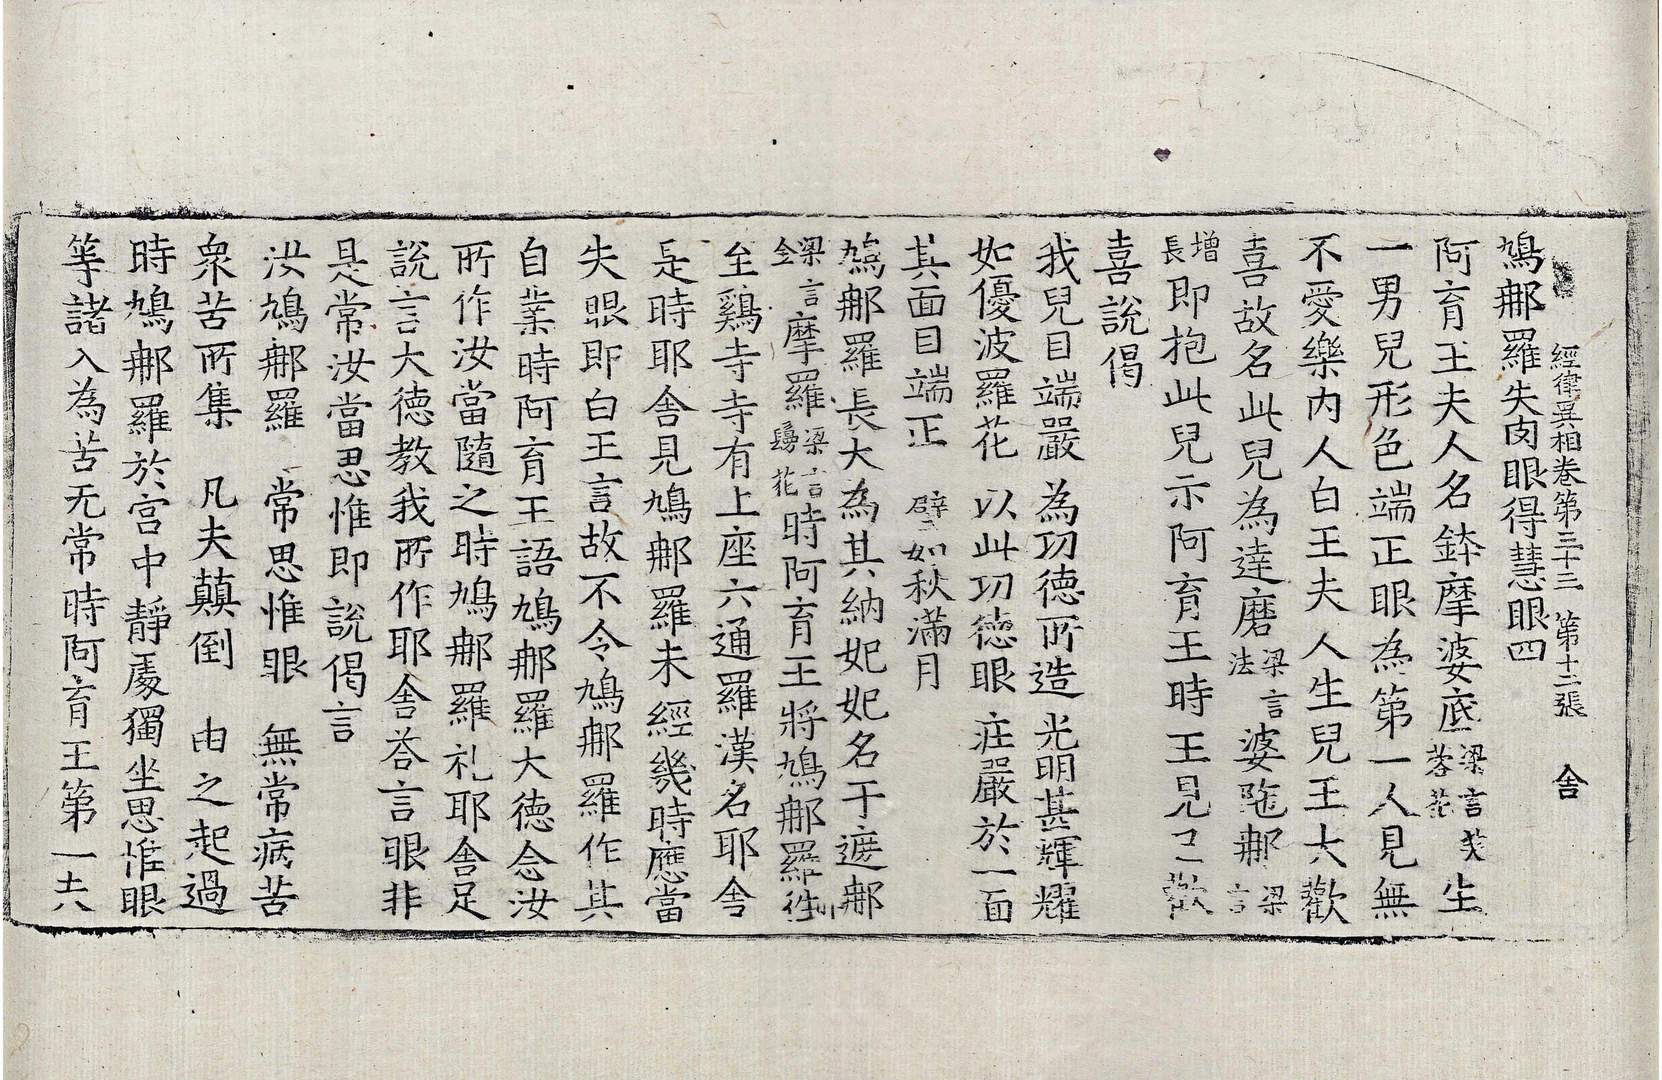 經律異相卷第三十三　第十二張　舍
鳩郍羅失肉眼得慧眼四
阿育王夫人名鉢摩婆底梁言芙蓉花生
一男兒形色端正眼為第一人見無
不愛樂內人白王夫人生兒王大歡
喜故名此兒為達磨梁言法婆陁郍梁言
增長即抱此兒示阿育王時王見已歡
喜說偈
我兒目端嚴　為功德所造　光明甚輝耀
如優波羅花　以此功德眼　莊嚴於一面
其面目端正　譬如秋滿月
鳩郍羅長大為其納妃妃名干遮郍
梁言金摩羅梁言鬘花時阿育王將鳩郍羅往
至鷄寺寺有上座六通羅漢名耶舍
是時耶舍見鳩郍羅未經幾時應當
失眼即白王言故不令鳩郍羅作其
自業時阿育王語鳩郍羅大德念汝
所作汝當隨之時鳩郍羅礼耶舍足
說言大德教我所作耶舍荅言眼非
是常汝當思惟即說偈言
汝鳩郍羅　常思惟眼　無常病苦
衆苦所集　凡夫顛倒　由之起過
時鳩郍羅於宮中靜處獨坐思惟眼
等諸入為苦无常時阿育王第一大